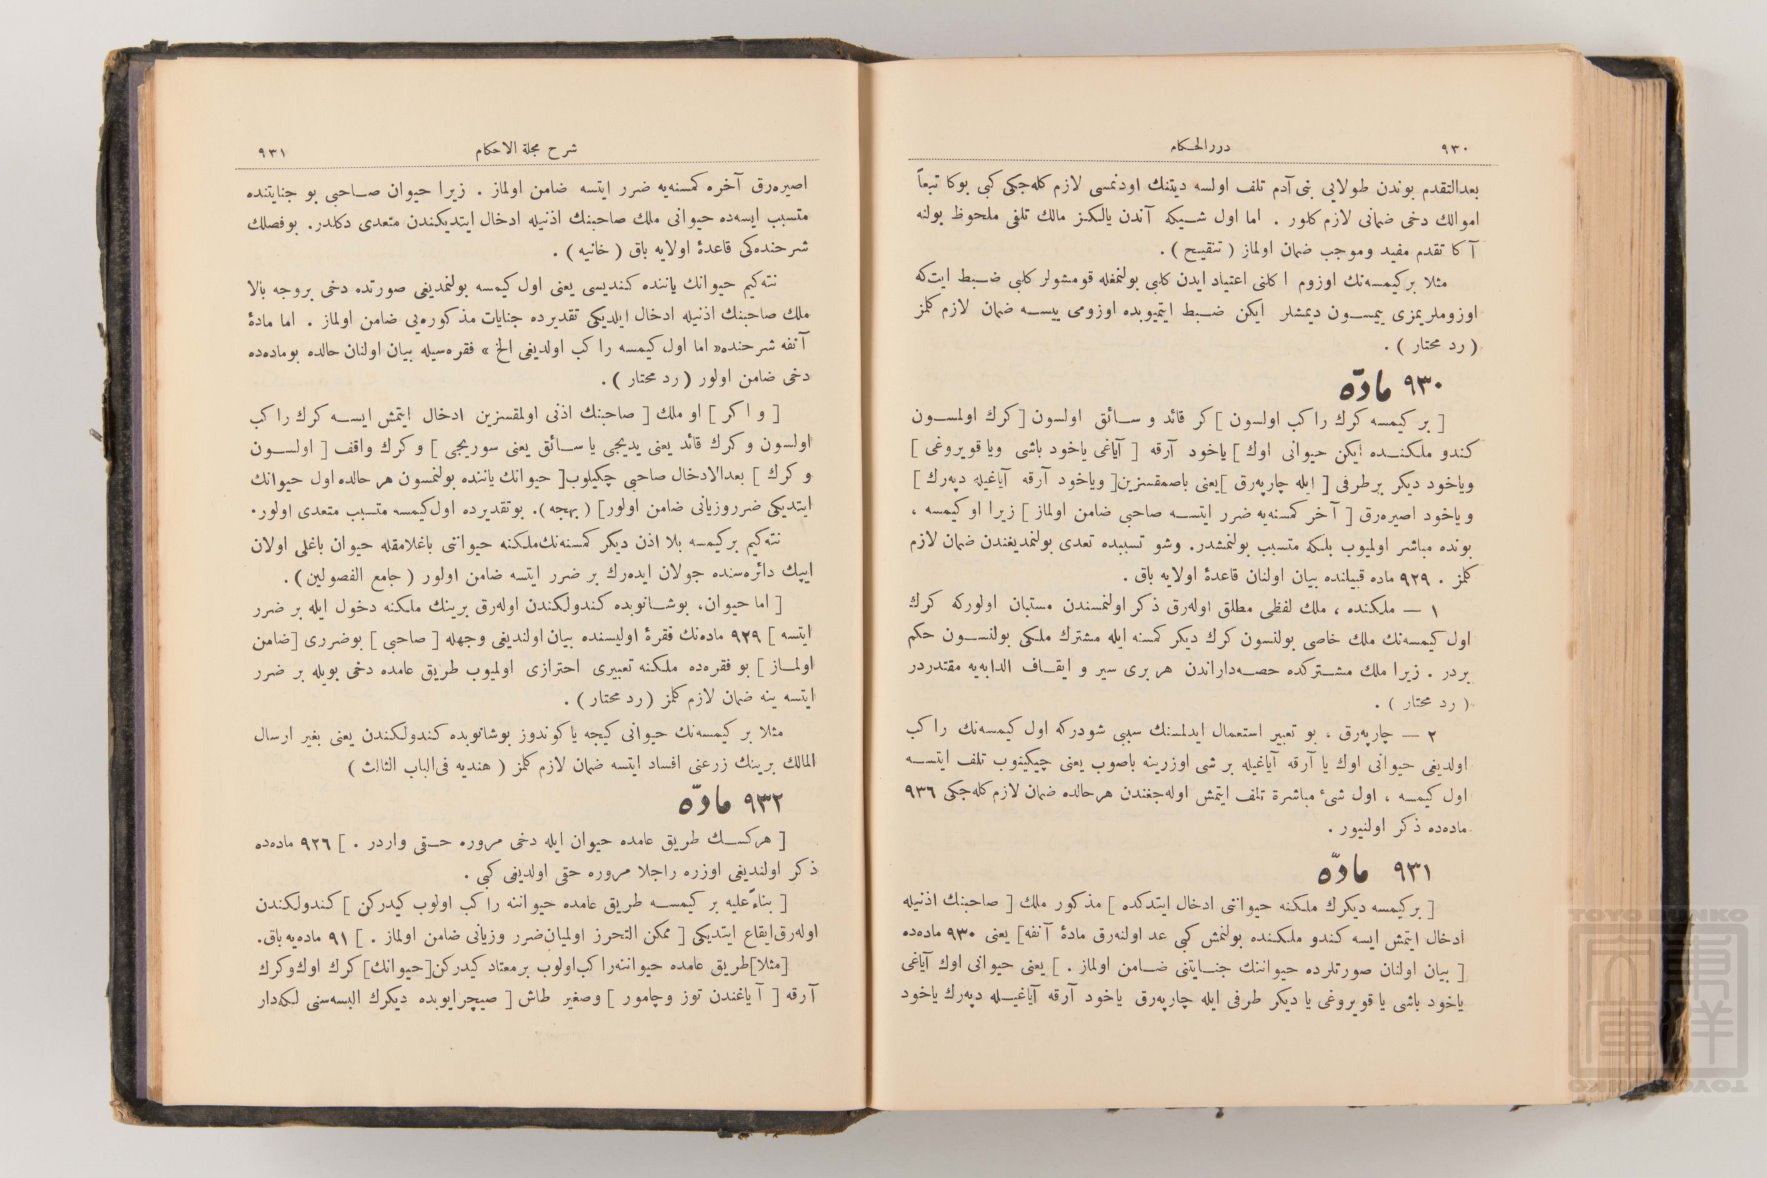 ٩٣٠
دررالحكام
بعدالتقدم بوندن طولايى بنى آدم تلف اولسه ديتنك اودنمسى لازم كله‌جكى كبى بوكا تبعاً
اموالك دخى ضمانى لازم كلور . اما اول شيكه آندن يالكز مالك تلفى ملحوظ بولنه
آكا تقدم مفيد وموجب ضمان اولماز ( تنقيح ) .
مثلا بركيمسه‌نك اوزوم اكلنى اعتياد ايدن كلبى بولنمغله قومشولر كلبى ضبط ايت‌كه
اوزوملريمزى ييمسون ديمشلر ايكن ضبط ايتميوبده اوزومى ييسه ضمان لازم كلمز
( رد محتار ) .
٩٣٠ مادّه
[ بر كيمسه كرك راكب اولسون ] كر قائد و سائق اولسون [ كرك اولمسون
كندو ملكنده ايكن حيوانى اوك ] ياخود آرقه [ آياغى ياخود باشى ويا قويروغى ]
وياخود ديكر برطرفى [ ايله چارپه‌رق ] يعنى باصمقسزين [ وياخود آرقه آياغيله دپه‌رك ]
وياخود اصيره‌رق [ آخر كمسنه‌يه ضرر ايتسه صاحبى ضامن اولماز ] زيرا اوكيمسه ،
بونده مباشر اولميوب بلكه متسبب بولنمشدر. وشو تسببده تعدى بولنمديغندن ضمان لازم
كلمز . ٩٢٩ ماده قبيلنده بيان اولنان قاعدۀ اولايه باق .
١ — ملكنده ، ملك لفظى مطلق اوله‌رق ذكر اولنمسندن مستبان اولوركه كرك
اول كيمسه‌نك ملك خاصى بولنسون كرك ديكر كمسنه ايله مشترك ملكى بولنسون حكم
بردر . زيرا ملك مشتركده حصه‌داراندن هربرى سير و ايقاف الدابه‌يه مقتدردر
( رد محتار ) .
٢ — چارپه‌رق ، بو تعبير استعمال ايدلمسنك سببى شودركه اول كيمسه‌نك راكب
اولديغى حيوانى اوك يا آرقه آياغيله بر شى اوزرينه باصوب يعنى چيكنيوب تلف ايتسه
اول كيمسه ، اول شئ مباشرة تلف ايتمش اوله‌جغندن هرحالده ضمان لازم كله‌جكى ٩٣٦
ماده‌ده ذكر اولنيور .
٩٣١ مادّه
[ بركيمسه ديكرك ملكنه حيواننى ادخال ايتدكده ] مذكور ملك [ صاحبنك اذنيله
ادخال ايتمش ايسه كندو ملكنده بولنمش كبى عد اولنه‌رق مادۀ آنفه ] يعنى ٩٣٠ ماده‌ده
[ بيان اولنان صورتلرده حيواننك جنايتنى ضامن اولماز . ] يعنى حيوانى اوك آياغى
ياخود باشى يا قويروغى يا ديكر طرفى ايله چارپه‌رق ياخود آرقه آياغيله دپه‌رك ياخود
شرح مجلة الاحكام
٩٣١
اصيره‌رق آخره كمسنه‌يه ضرر ايتسه ضامن اولماز . زيرا حيوان صاحبى بو جنايتنده
متسبب ايسه‌ده حيوانى ملك صاحبنك اذنيله ادخال ايتديكندن متعدى دكلدر. بوفصلك
شرحنده‌كى قاعدۀ اولايه باق ( خانيه ) .
نته‌كيم حيوانك ياننده كنديسى يعنى اول كيمسه بولنمديغى صورتده دخى بروجه بالا
ملك صاحبنك اذنيله ادخال ايلديكى تقديرده جنايات مذكوره‌يى ضامن اولماز . اما مادۀ
آنفه شرحنده« اما اول كيمسه راكب اولديغى الخ » فقره‌سيله بيان اولنان حالده بوماده‌ده
دخى ضامن اولور ( رد محتار ) .
[ و اكر ] او ملك [ صاحبنك اذنى اولمقسزين ادخال ايتمش ايسه كرك راكب
اولسون و كرك قائد يعنى يديجى يا سائق يعنى سوريجى ] و كرك واقف [ اولسون
و كرك ] بعدالادخال صاحبى چكيلوب [ حيوانك ياننده بولنمسون هر حالده اول حيوانك
ايتديكى ضرروزيانى ضامن اولور ] ( بهجه ). بوتقديرده اول كيمسه متسبب متعدى اولور.
نته‌كيم بركيمسه بلا اذن ديكر كمسنه‌نك ملكنه حيواننى باغلامقله حيوان باغلى اولان
ايپك دائره‌سنده جولان ايده‌رك بر ضرر ايتسه ضامن اولور ( جامع الفصولين ) .
[ اما حيوان، بوشانوبده كندولكندن اوله‌رق برينك ملكنه دخول ايله بر ضرر
ايتسه ] ٩٢٩ ماده‌نك فقرۀ اوليسنده بيان اولنديغى وجهله [ صاحبى ] بوضررى [ ضامن
اولماز ] بو فقره‌ده ملكنه تعبيرى احترازى اولميوب طريق عامده دخى بويله بر ضرر
ايتسه ينه ضمان لازم كلمز ( رد محتار ) .
مثلا بر كيمسه‌نك حيوانى كيجه يا كوندوز بوشانوبده كندولكندن يعنى بغير ارسال
المالك برينك زرعنى افساد ايتسه ضمان لازم كلمز ( هنديه فى‌الباب الثالث )
٩٣٢ مادّه
[ هركسك طريق عامده حيوان ايله دخى مروره حقى واردر . ] ٩٢٦ ماده‌ده
ذكر اولنديغى اوزره راجلا مروره حقى اولديغى كبى .
[ بناءً عليه بر كيمسه طريق عامده حيواننه راكب اولوب كيدركن ] كندولكندن
اوله‌رق ايقاع ايتديكى [ ممكن التحرز اولميان ضرر وزيانى ضامن اولماز . ] ٩١ ماده‌يه باق.
[ مثلا ] طريق عامده حيواننه راكب اولوب برمعتاد كيدركن [ حيوانك ] كرك اوك وكرك
آرقه [ آياغندن توز وچامور ] وصغير طاش [ صيچرايوبده ديكرك البسه‌سنى لكه‌دار
TOYO BUNKO